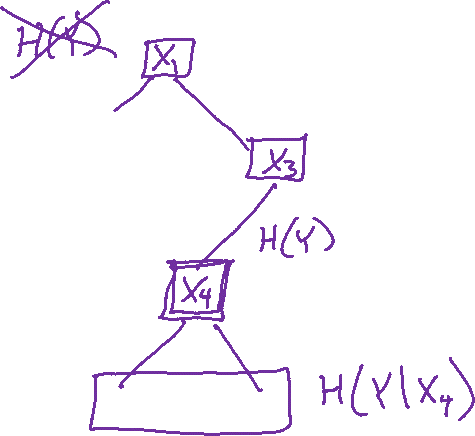 H(Y)
X1
X3
H(Y)
X4
H(Y|X4)